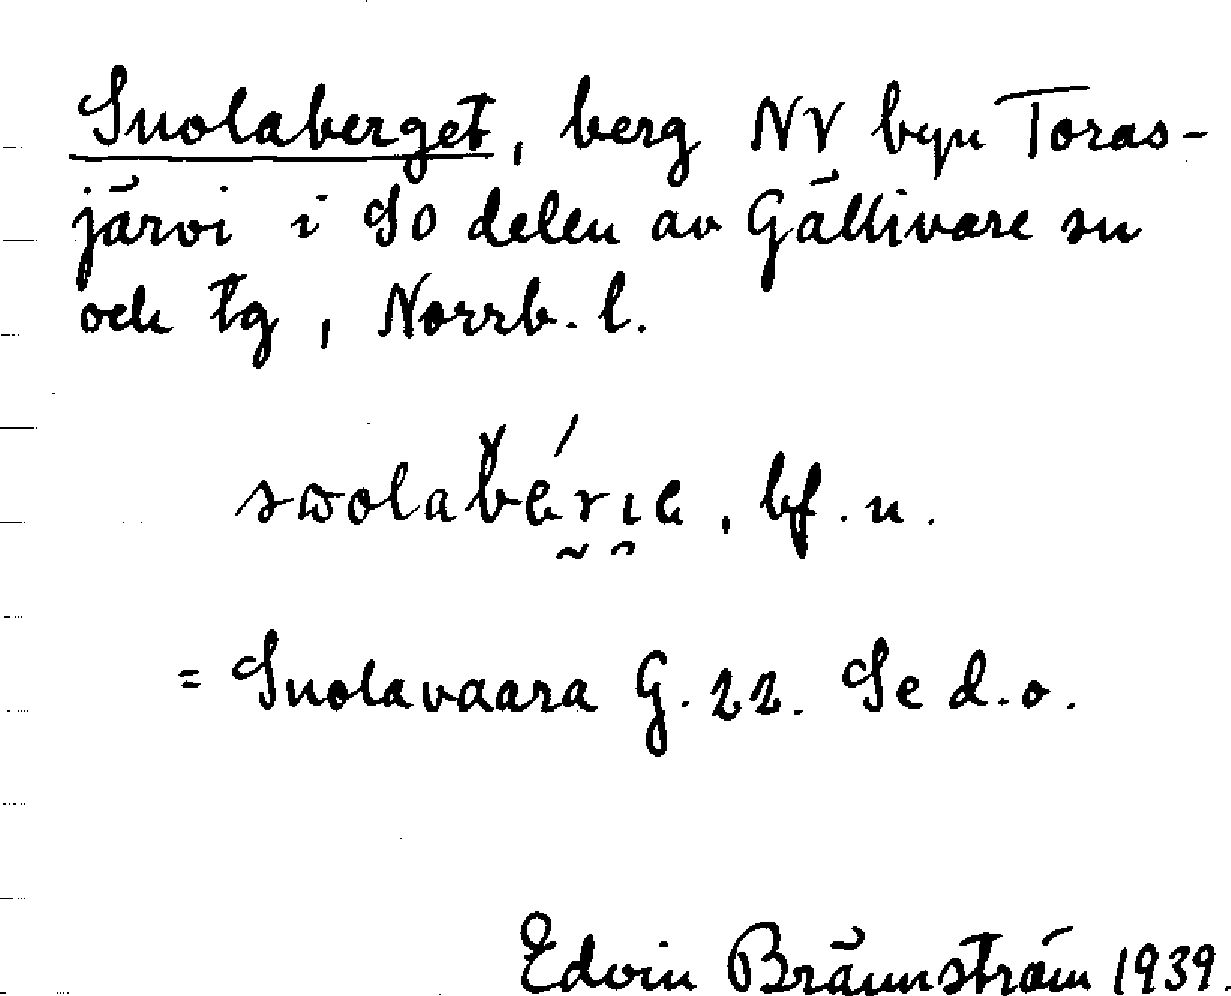 Suolaberget, berg NV byn Toras-
järvi i SO delen av Gällivare sn
och tg, Norrb. l.
bf. n.
= Suolavaara G. 22. Se d. o.
Edvin Brännström 1939.